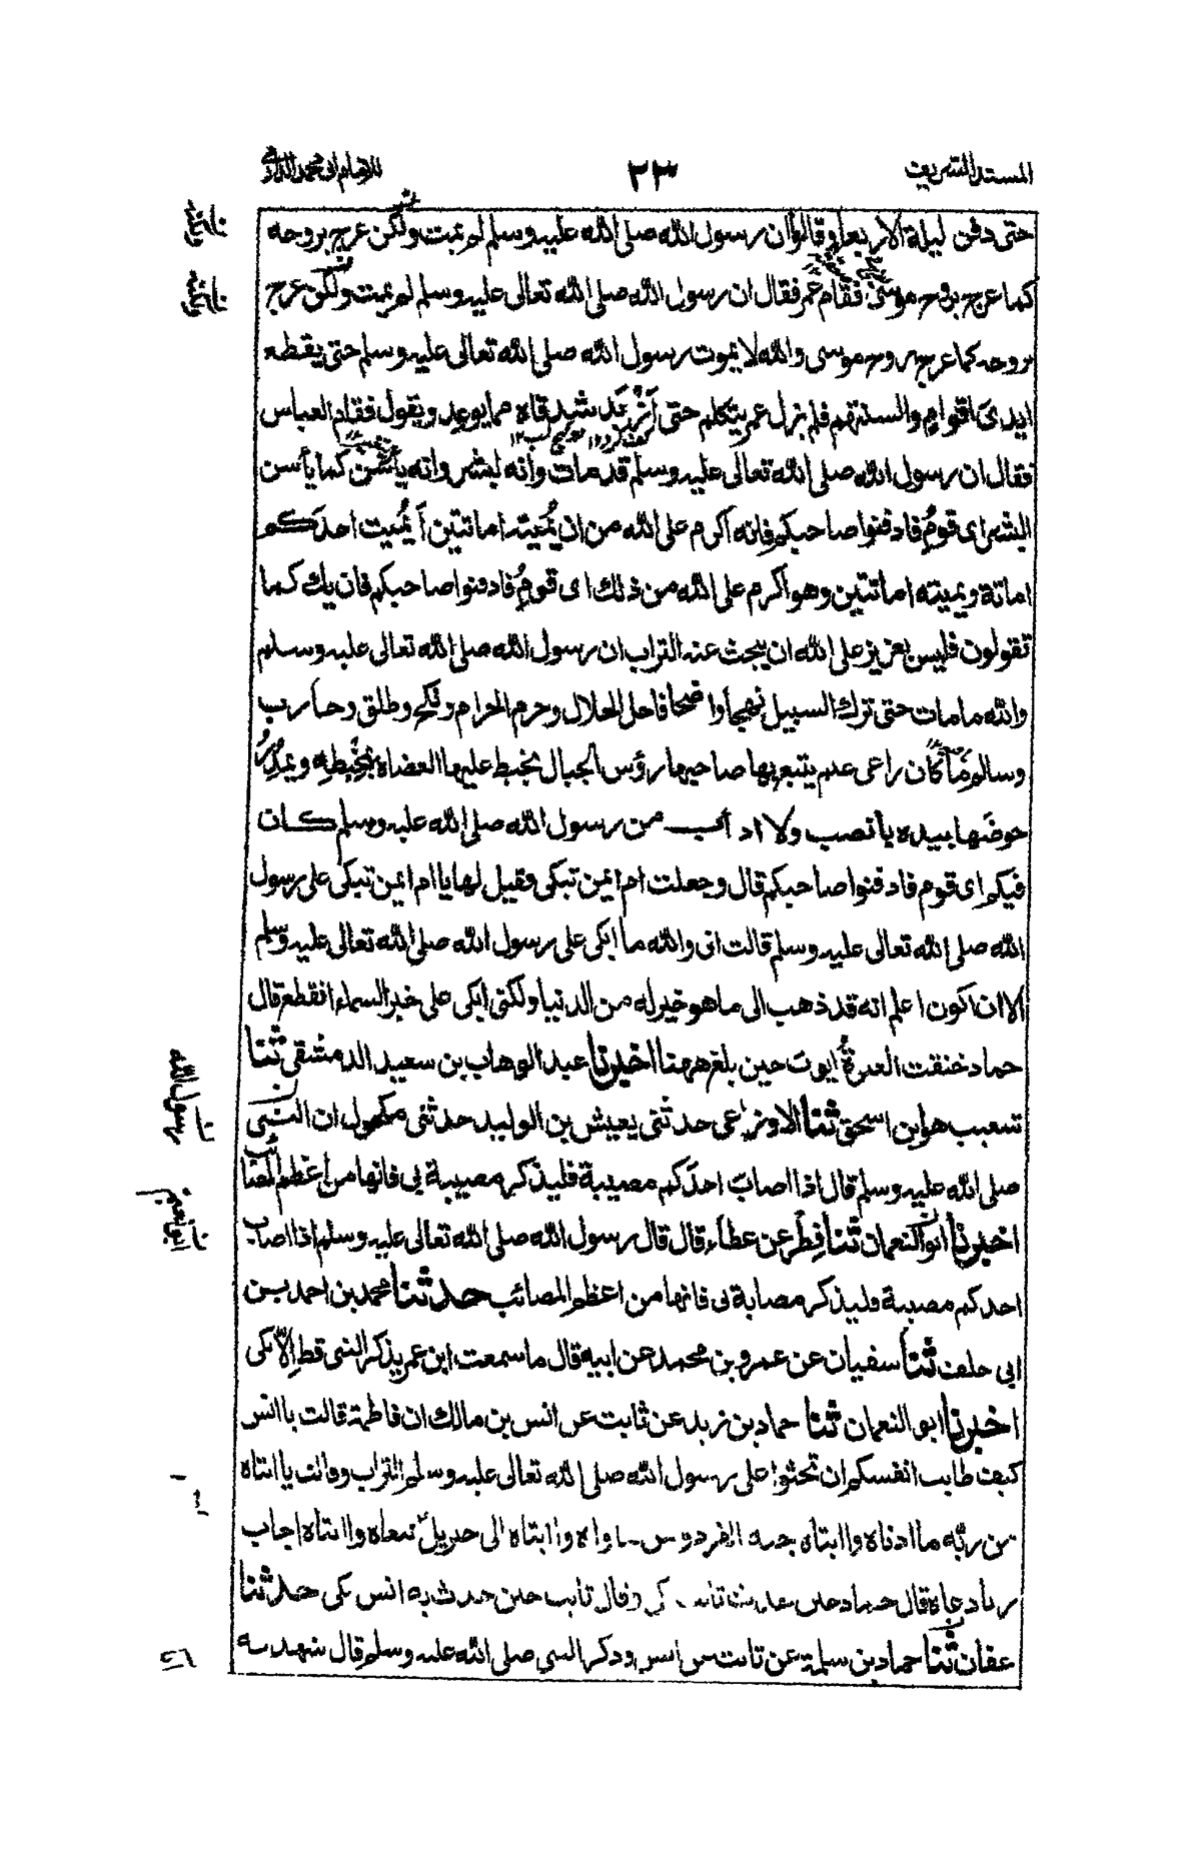 المسند الشريف
٢٣
للامام ابى محمد الدارمى
حتى دفن ليلة الاربعاء وقالوا ان رسول الله صلى الله عليه وسلم لم يمت ولكن عرج بروحه
كما عرج بروح موسى فقام عمر فقال ان رسول الله صلى الله تعالى عليه وسلم لم يمت ولكن عرج
بروحه كما عرج بروح موسى والله لا يموت رسول الله صلى الله تعالى عليه وسلم حتى يقطع
ايدى اقوام والسنتهم فلم يزل عمر يتكلم حتى ازبد شدقاه مما يوعد ويقول فقام العباس
فقال ان رسول الله صلى الله تعالى عليه وسلم قد مات وانه لبشر وانه يأسن كما يأسن
البشر اى قوم فادفنوا صاحبكم فانه اكرم على الله من ان يُميته اماتتين أيُميت احدكم
اماتة ويميته اماتتين وهو اكرم على الله من ذلك اى قوم فادفنوا صاحبكم فان يك كما
تقولون فليس بعزيز على الله ان يبحث عنه التراب ان رسول الله صلى الله تعالى عليه وسلم
والله ما مات حتى ترك السبيل نهجا واضحا فاحل الحلال وحرم الحرام ونكح وطلق وحارب
وسالم ما كان راعى غنم يتبع بها صاحبها رؤس الجبال يخبط عليها العضاه بمخبطه ويمدر
حوضها بيده بانصب ولا ادأب من رسول الله صلى الله عليه وسلم كان
فيكم اى قوم فادفنوا صاحبكم قال وجعلت ام ايمن تبكى وقيل لها يا ام ايمن تبكى على رسول
الله صلى الله تعالى عليه وسلم قالت انى والله ما ابكى على رسول الله صلى الله تعالى عليه وسلم
الا ان اكون اعلم انه قد ذهب الى ما هو خير له من الدنيا ولكنى ابكى على خبر السماء انقطع قال
حماد خنقت العبرة ايوب حين بلغ ههنا اخبرنا عبد الوهاب بن سعيد الدمشقى ثنا
شعيب هو ابن اسحق ثنا الاوزاعى حدثنى يعيش بن الوليد حدثنى مكحول ان النبى
رسول الله
صلى الله عليه وسلم قال اذا اصاب احدكم مصيبة فليذكر مصيبة بى فانها من اعظم المصائب
اخبرنا ابو النعمان ثنا فطر عن عطاء قال قال رسول الله صلى الله تعالى عليه وسلم اذا اصاب
احدكم مصيبة فليذكر مصابه بى فانها من اعظم المصائب حدثنا محمد بن احمد بن
ابى خلف ثنا سفيان عن عمرو بن محمد عن ابيه قال ما سمعت ابن عمر يذكر النبى قط الا بكى
اخبرنا ابو النعمان ثنا حماد بن زيد عن ثابت عن انس بن مالك ان فاطمة قالت يا انس
كيف طابت انفسكم ان تحثوا على رسول الله صلى الله تعالى عليه وسلم التراب وقالت يا ابتاه
من ربه ما ادناه وا ابتاه جنة الفردوس ماواه وا ابتاه الى جبريل ننعاه وا ابتاه اجاب
ربا دعاه قال حماد حين حدث ثابت بكى وقال ثابت حين حدث به انس بكى حدثنا
عفان ثنا حماد بن سلمة عن ثابت عن انس وذكر النبى صلى الله عليه وسلم قال شهدته